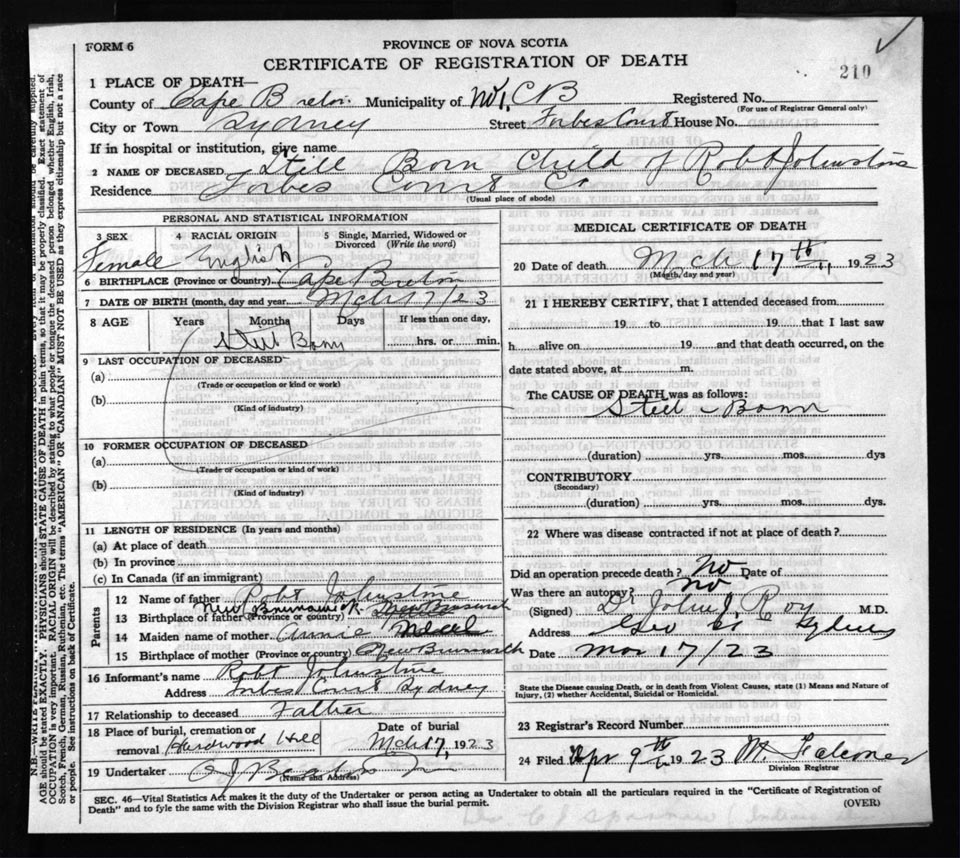 FORM 6
PROVINCE OF NOVA SCOTIA
CERTIFICATE OF REGISTRATION OF DEATH
210
1 PLACE OF DEATH—
County of Cape Breton Municipality of No 1, CB Registered No.
(For use of Registrar General only)
City or Town Sydney Street Forbes Court House No.
If in hospital or institution, give name
2 NAME OF DECEASED Still Born Child of Robt Johnstone
Residence Forbes Court
(Usual place of abode)
PERSONAL AND STATISTICAL INFORMATION
3 SEX 4 RACIAL ORIGIN 5 Single, Married, Widowed or Divorced (Write the word)
Female English
6 BIRTHPLACE (Province or Country) Cape Breton
7 DATE OF BIRTH (month, day and year) Mch 17/23
8 AGE Years Months Days If less than one day,
Still Born hrs. or min.
9 LAST OCCUPATION OF DECEASED—
(a)
(Trade or occupation or kind or work)
(b)
(Kind of industry)
10 FORMER OCCUPATION OF DECEASED
(a)
(Trade or occupation or kind of work)
(b)
(Kind of industry)
11 LENGTH OF RESIDENCE (In years and months)
(a) At place of death
(b) In province
(c) In Canada (if an immigrant)
Parents
12 Name of father Robt Johnstone
13 Birthplace of father (Province or country) New Brunswick
14 Maiden name of mother Annie
15 Birthplace of mother (Province or Country) New Brunswick
16 Informant's name Robt Johnstone
Address Forbes Court Sydney
17 Relationship to deceased Father
18 Place of burial, cremation or removal Hardwood Hill Date of burial Mch 17, 1923
19 Undertaker
(Name and Address)
MEDICAL CERTIFICATE OF DEATH
20 Date of death Mch 17th 1923
(Month, day and year)
21 I HEREBY CERTIFY, that I attended deceased from
19 to 19 that I last saw
h alive on 19 and that death occurred, on the
date stated above, at m.
The CAUSE OF DEATH was as follows:
Still Born
(duration) yrs. mos. dys
CONTRIBUTORY
(Secondary)
(duration) yrs. mos. dys.
22 Where was disease contracted if not at place of death?
Did an operation precede death? No Date of
Was there an autopsy? No
(Signed) Dr John J. Roy M.D.
Address Geo St Sydney
Date Mar 17/23
State the Disease causing Death, or in death from Violent Causes, state (1) Means and Nature of
Injury, (2) whether Accidental, Suicidal or Homicidal.
23 Registrar's Record Number
24 Filed Apr 9th 1923
Division Registrar
SEC. 46—Vital Statistics Act makes it the duty of the Undertaker or person acting as Undertaker to obtain all the particulars required in the "Certificate of Registration of
Death" and to fyle the same with the Division Registrar who shall issue the burial permit. (OVER)
AGE should be stated EXACTLY. PHYSICIANS should STATE CAUSE OF DEATH in plain terms, so that it may be properly classified. Exact statement of
OCCUPATION is very important. RACIAL ORIGIN will be described by stating to what people or tongue the deceased person belonged whether English, Irish,
Scotch, French, German, Russian, Ruthenian, etc. The terms "AMERICAN" or "CANADIAN" MUST NOT BE USED as they express citizenship but not a race
or people. See instructions on back of Certificate.